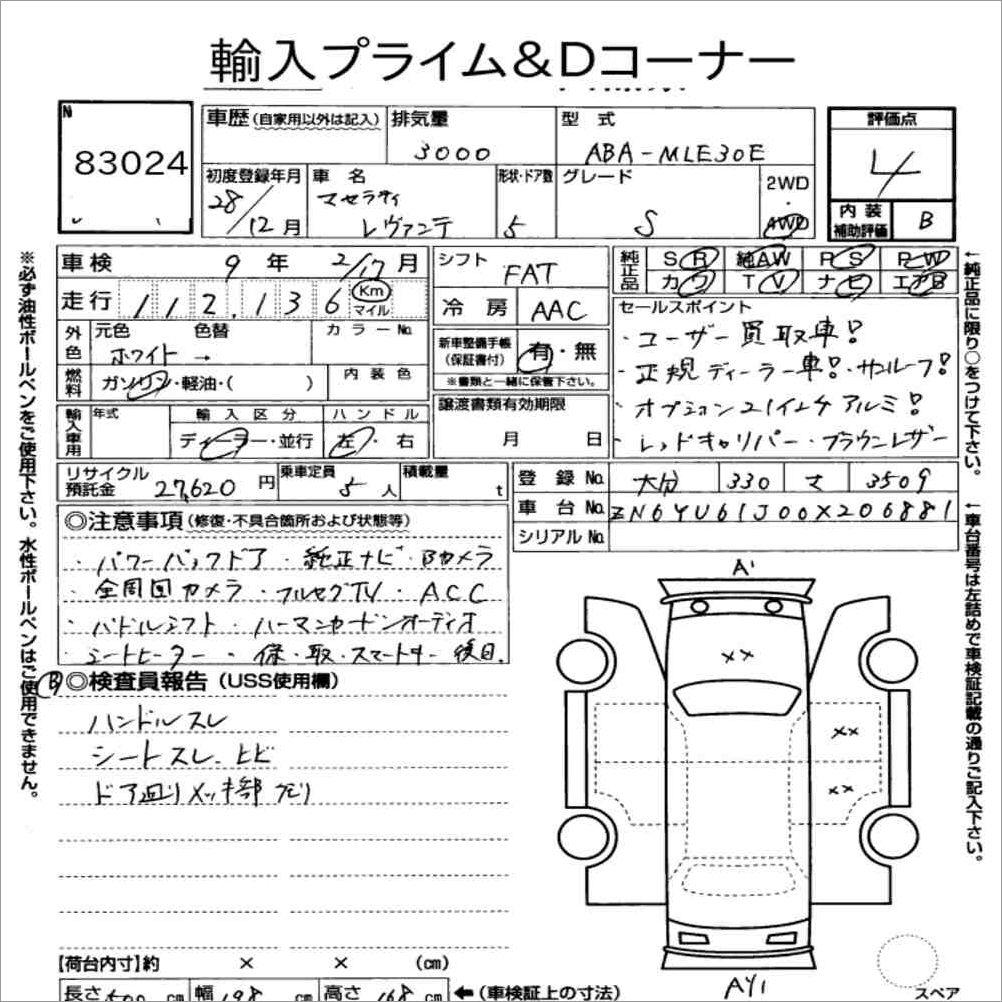 輸入プライム&Dコーナー
N
83024
車歴 (自家用以外は記入)
排気量
3000
型式
ABA-MLE30E
評価点
4
初度登録年月
28/12月
車名
マセラティ
レヴァンテ
形状・ドア数
5
グレード
S
2WD
・
AWD
内装
補助評価
B
車検 9年 2/17月
シフト
FAT
純正品
SR 純AW PS PW
カワ TV ナビ エアB
走行 112,136 Km
マイル
冷房 AAC
セールスポイント
・ユーザー買取車!
・正規ディーラー車!・サンルーフ!
・オプション21インチアルミ!
・レッドキャリパー・ブラウンレザー
外色
元色 色替
ホワイト →
カラーNo.
新車整備手帳
(保証書付)
有・無
※書類と一緒に保管下さい。
燃料
ガソリン・軽油・( )
内装色
輸入車用
年式
輸入区分
ディーラー・並行
ハンドル
左・右
譲渡書類有効期限
月 日
リサイクル
預託金
27,620円
乗車定員
5人
積載量
t
登録No. 大分 330 マ 3509
車台No. ZN6YU61J00X206881
シリアルNo.
◎注意事項 (修復・不具合箇所および状態等)
・パワーバックドア・純正ナビ・Bカメラ
・全周囲カメラ・フルセグTV・ACC
・パドルシフト・ハーマンカードンオーディオ
・シートヒーター・保・取・スマートキー後日.
B ◎検査員報告 (USS使用欄)
ハンドルスレ
シートスレ、ヒビ
ドア廻りメッキ部クモリ
A1
××
××
××
AY1
スペア
【荷台内寸】約 × × (cm)
長さ 500 cm
幅 198 cm
高さ 168 cm
←(車検証上の寸法)
※必ず油性ボールペンをご使用下さい。水性ボールペンはご使用できません。
←純正品に限り○をつけて下さい。
←車台番号は左詰めで車検証記載の通りご記入下さい。